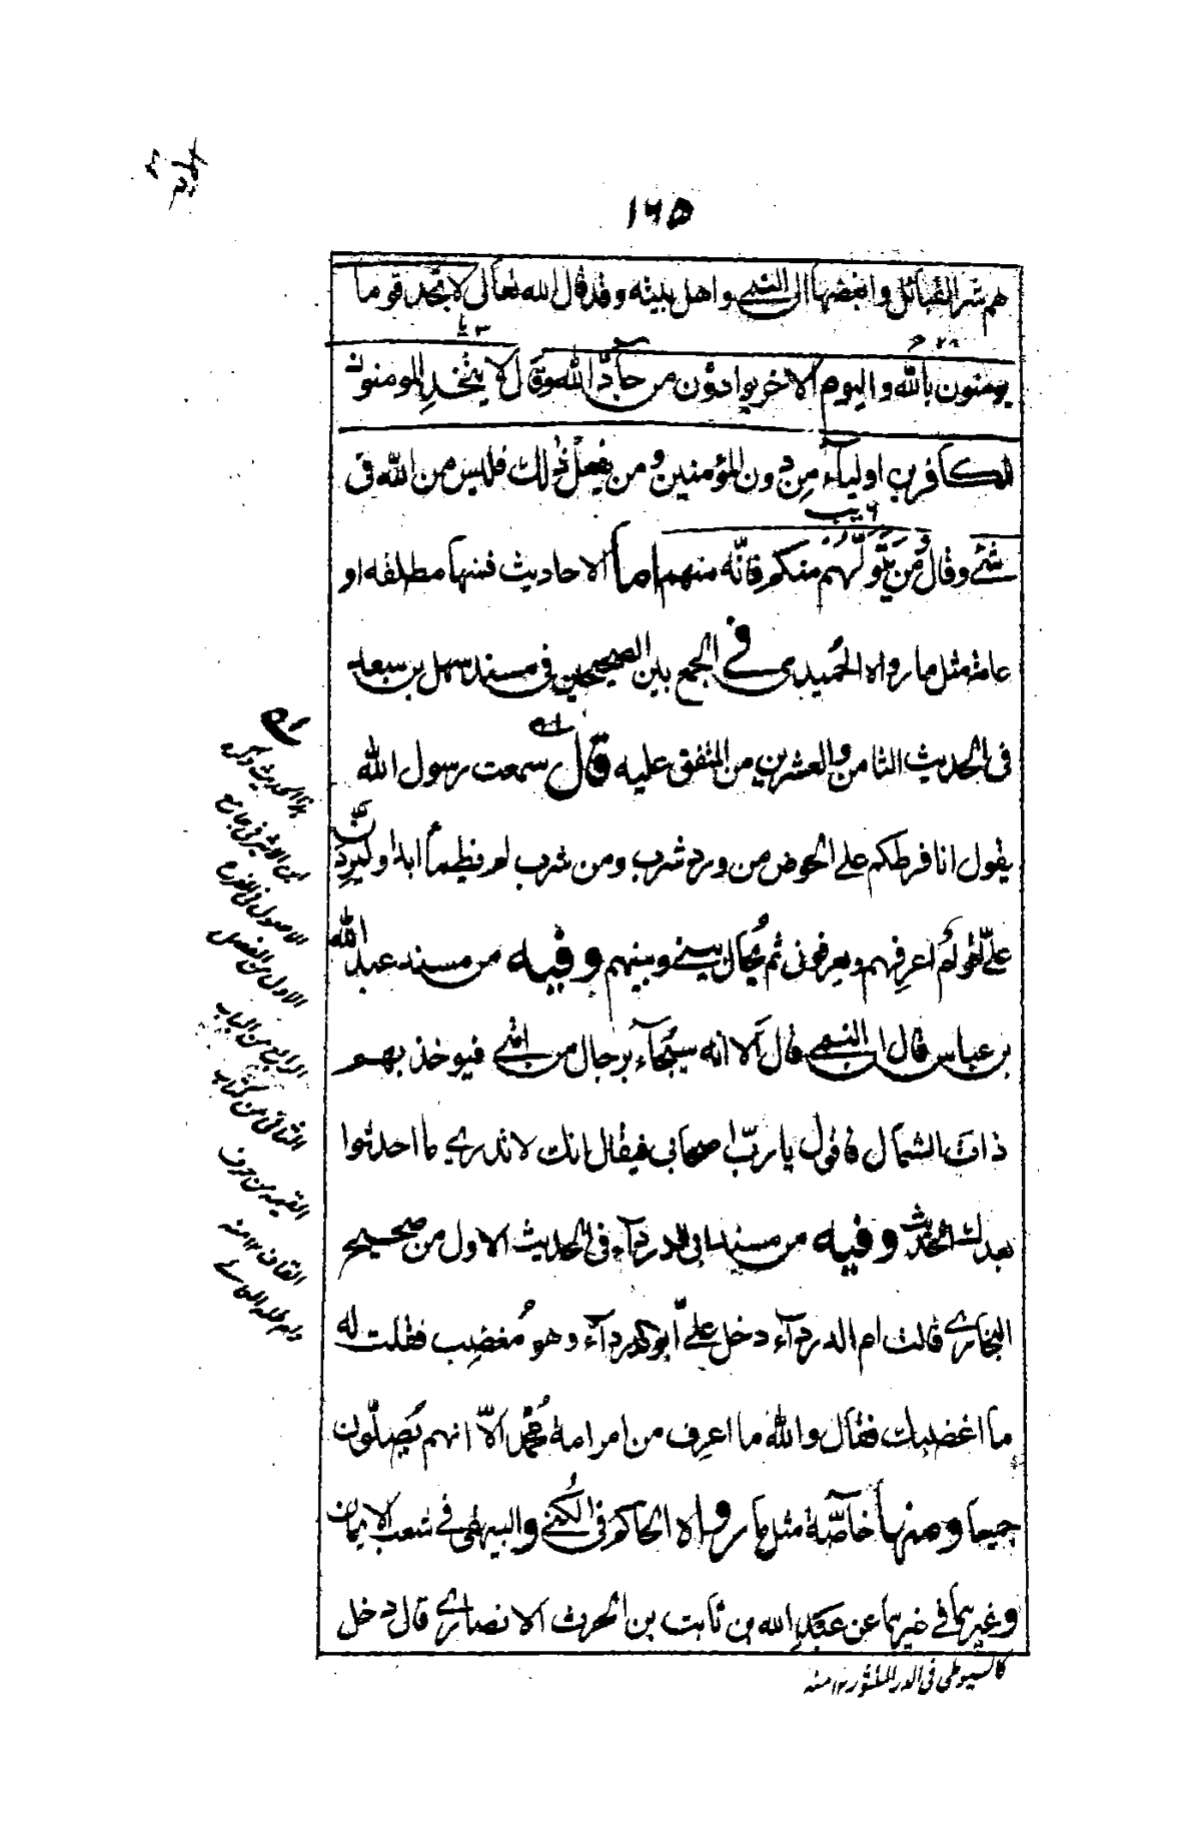 ١٦٥
هم شر القبائل وابغضها الى النبي واهل بيته وقد قال الله تعالى لا تجد قوما
يومنون بالله واليوم الاخر يوادّون من حآدّ الله وقال لا يتّخذِ المومنون
للكافرين اوليآء مِن دون المؤمنين ومن يفعل ذٰلك فليس من الله فى
شئ وقال ومَن يتولّهُم منكم فانّه منهم اما الاحاديث فمنها مطلقه او
عامة مثل ما رواه الحُميدى فى الجمع بين الصحيحين فى مسند سهل بن سعد
فى الحديث الثامن والعشرين من المتفق عليه قال سمعت رسول الله
يقول انا فرطكم على الحوض من ورد شرب ومن شرب لم يظمأ ابدا وليردَنّ
علىّ اقوام اعرفهم ويعرفونى ثم يُحال بينى وبينهم وفيه من مسند عبد الله
بن عباس قال ان النبى قال الا انه سيُجآء برجال من امتى فيوخذ بهم
ذات الشمال فاقول يا ربّ اصحابى فيقال انك لا تدرى ما احدثوا
بعدك الحديث وفيه من مسند ابى الدردآء فى الحديث الاول من صحيح
البخارى قالت ام الدردآء دخل علىّ ابو الدردآء وهو مُغضِب فقلت له
ما اغضبك فقال والله ما اعرف من امر امة مُحمّد الّا انهم يُصلّون
جميعا ومنها خاصّة مثل ما رواه الحاكم فى الكُنى والبيهقى فى شعب الايمان
وغيرهما فى غيرهما عن عبد الله بن ثابت بن الحرث الانصارى قال دخل
كالسيوطى فى الدر المنثور ١٢ منه
هذا الحديث ذكره
ابن الاثير فى جامع
الاصول فى الفرع
الاول من الفصل
الرابع من الباب
الثانى من كتاب
القيمه من حرف
القاف ١٢ منه